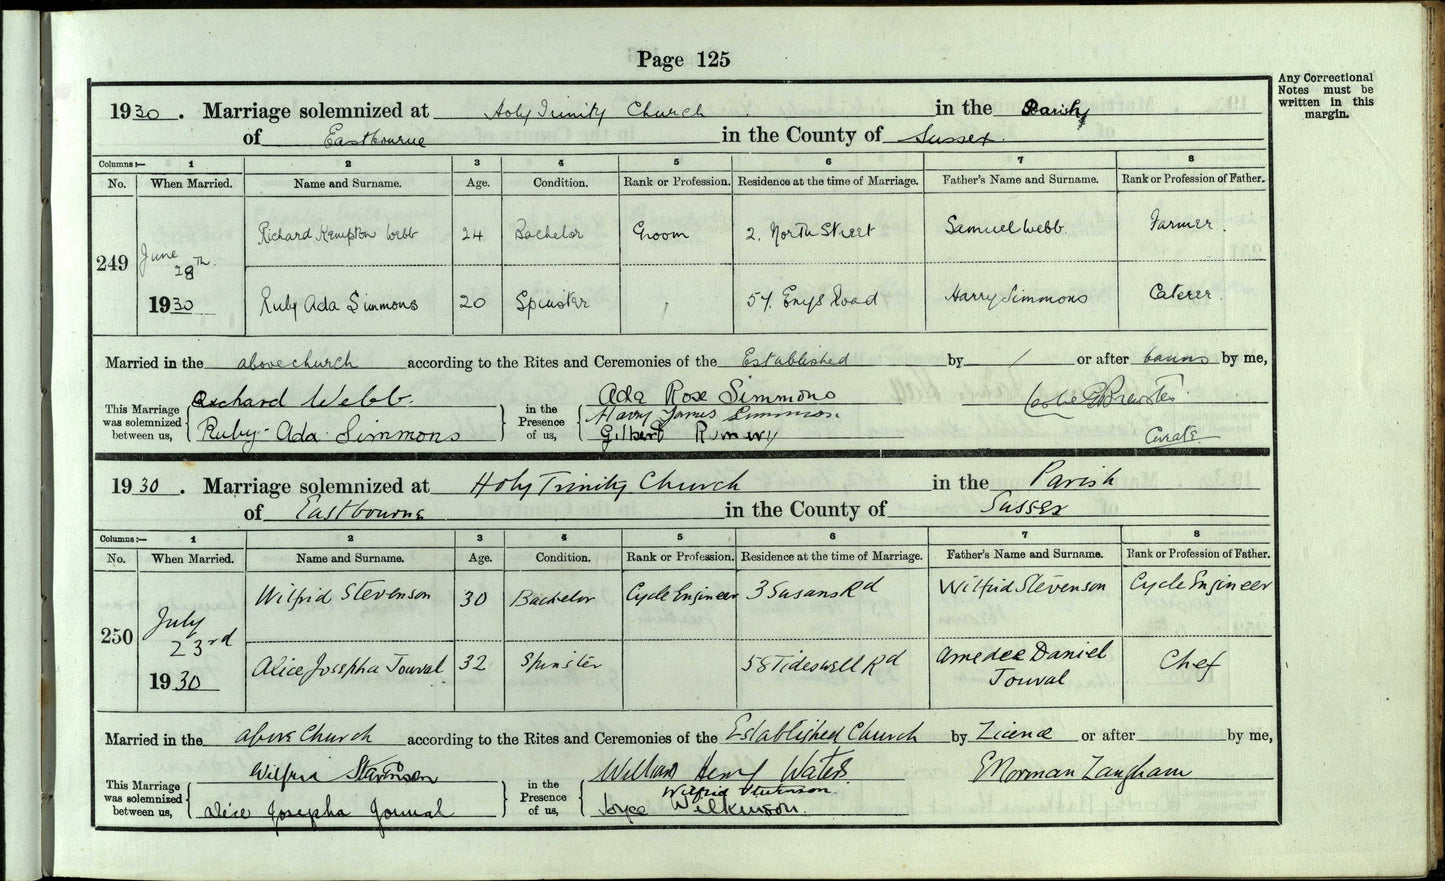 Page 125
Any Correctional
Notes must be
written in this
margin.
1930. Marriage solemnized at Holy Trinity Church in the Parish
of Eastbourne in the County of Sussex
Columns:— 1 2 3 4 5 6 7 8
No. When Married. Name and Surname. Age. Condition. Rank or Profession. Residence at the time of Marriage. Father's Name and Surname. Rank or Profession of Father.
249 June 28th 1930 Richard Kempton Webb 24 Bachelor Groom 2, North Street Samuel Webb Farmer
Ruby Ada Simmons 20 Spinster 57, Enys Road Harry Simmons Caterer
Married in the above church according to the Rites and Ceremonies of the Established by / or after banns by me,
This Marriage was solemnized between us, Richard Webb. Ruby Ada Simmons in the Presence of us, Ada Rose Simmons Harry James Simmons Gilbert
Curate
1930. Marriage solemnized at Holy Trinity Church in the Parish
of Eastbourne in the County of Sussex
Columns:— 1 2 3 4 5 6 7 8
No. When Married. Name and Surname. Age. Condition. Rank or Profession. Residence at the time of Marriage. Father's Name and Surname. Rank or Profession of Father.
250 July 23rd 1930 Wilfrid Stevenson 30 Bachelor Cycle Engineer 3 Susans Rd Wilfrid Stevenson Cycle Engineer
Alice Josepha Jouval 32 Spinster 58 Tideswell Rd Amedee Daniel Jouval Chef
Married in the above Church according to the Rites and Ceremonies of the Established Church by Licence or after by me,
This Marriage was solemnized between us, Wilfrid Stevenson Alice Josepha Jouval in the Presence of us, William Henry Waters Wilfrid Stevenson Joyce Wilkinson. E Norman Langham